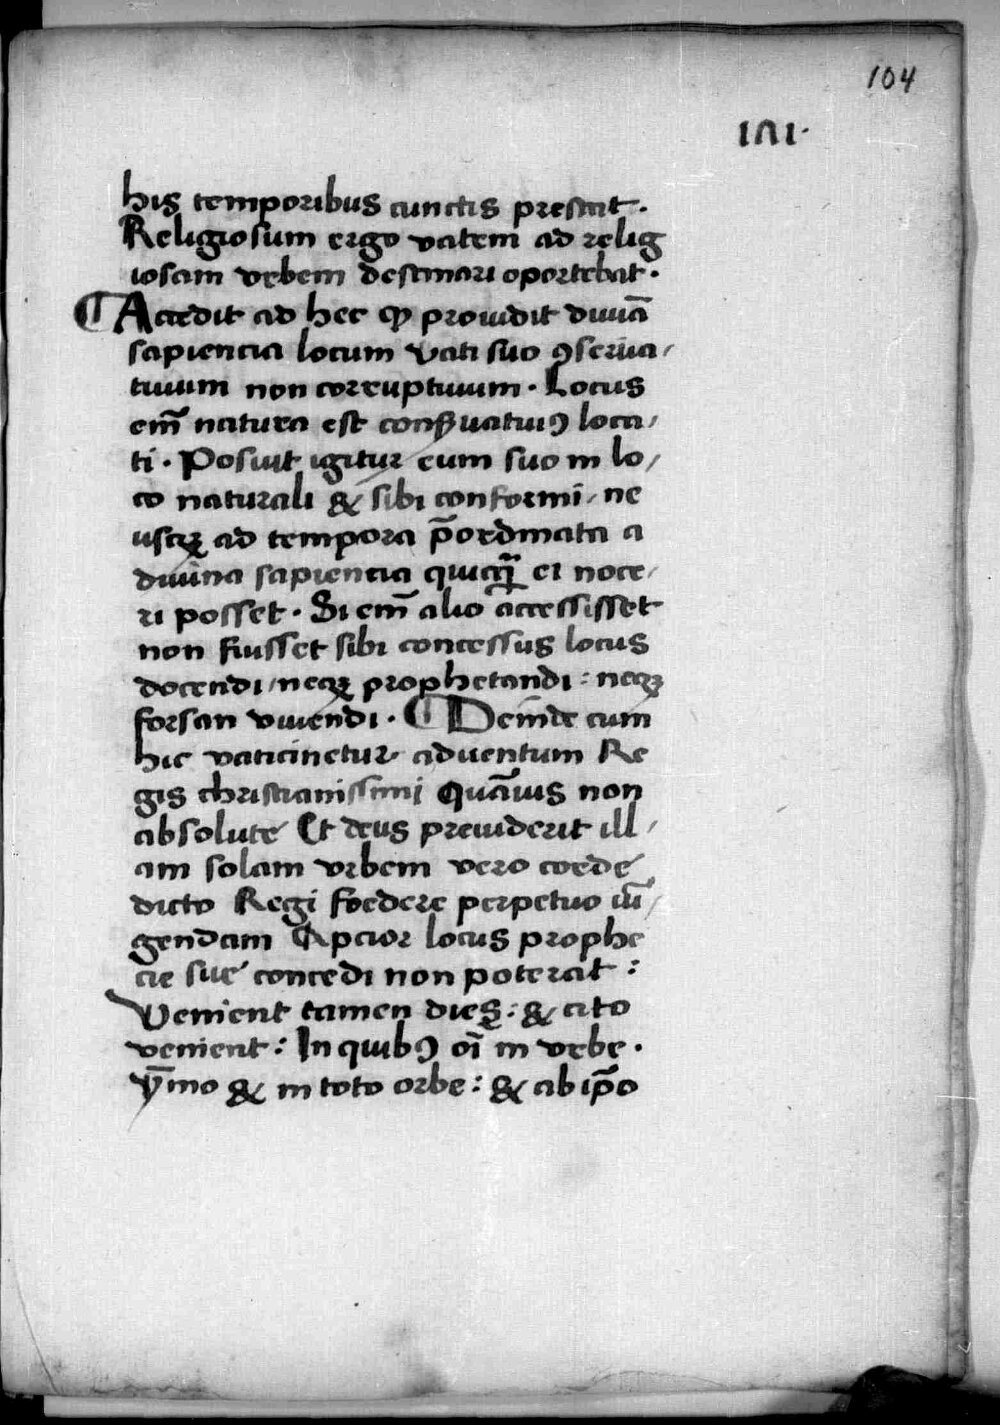 104
ıпı·
his temporibus cunctis prestat·
Religiosum ergo vatem ad relig
iosam vrbem destinari oportebat·
¶ Accedit ad hec ꝙ prouidit diuīa
sapiencia locum vati suo ꝯserua/
tiuum non corruptiuum· Locus
em̄ natura est conẜuatiuꝰ loca/
ti· Posuit igitur eum suo in lo/
co naturali & sibi conformi/ ne
usqꝫ ad tempora p̄ordinata a
diuina sapiencia quicq̄ ei noce/
ri posset· Si em̄ alio accessisset
non fuisset sibi concessus locus
docendi/ neqꝫ prophetandi: neqꝫ
forsan viuendi· ¶ Deinde cum
hic vaticinetur aduentum Re
gis christianissimi Quāuis non
absolute Et deus preuiderit ill/
am solam vrbem vero coede
dicto Regi foedere perpetuo iū/
gendam Apcior locus prophe
cie sue concedi non poterat:
Venient tamen dies: & cito
venient: In quibꝰ oī in vrbe·
ȳmo & in toto orbe: & ab ip̄o